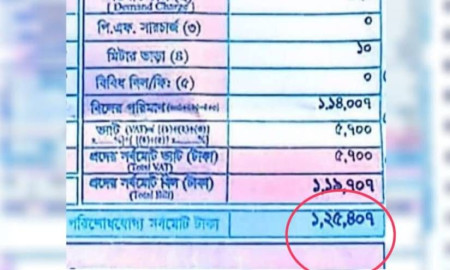 [ Demand Charge ]
পি.এফ. সারচার্জ (৩) ০
মিটার ভাড়া (৪) ১০
বিবিধ বিল/কি: (৫) ০
বিলের পরিমাণ ১,১৪,০০৭
ভ্যাট ৫,৭০০
প্রদেয় সর্বমোট ভ্যাট (টাকা) ৫,৭০০
(Total VAT)
প্রদেয় সর্বমোট বিল (টাকা) ১,১৯,৭০৭
(Total Bill)
পরিশোধযোগ্য সর্বমোট টাকা ১,২৫,৪০৭